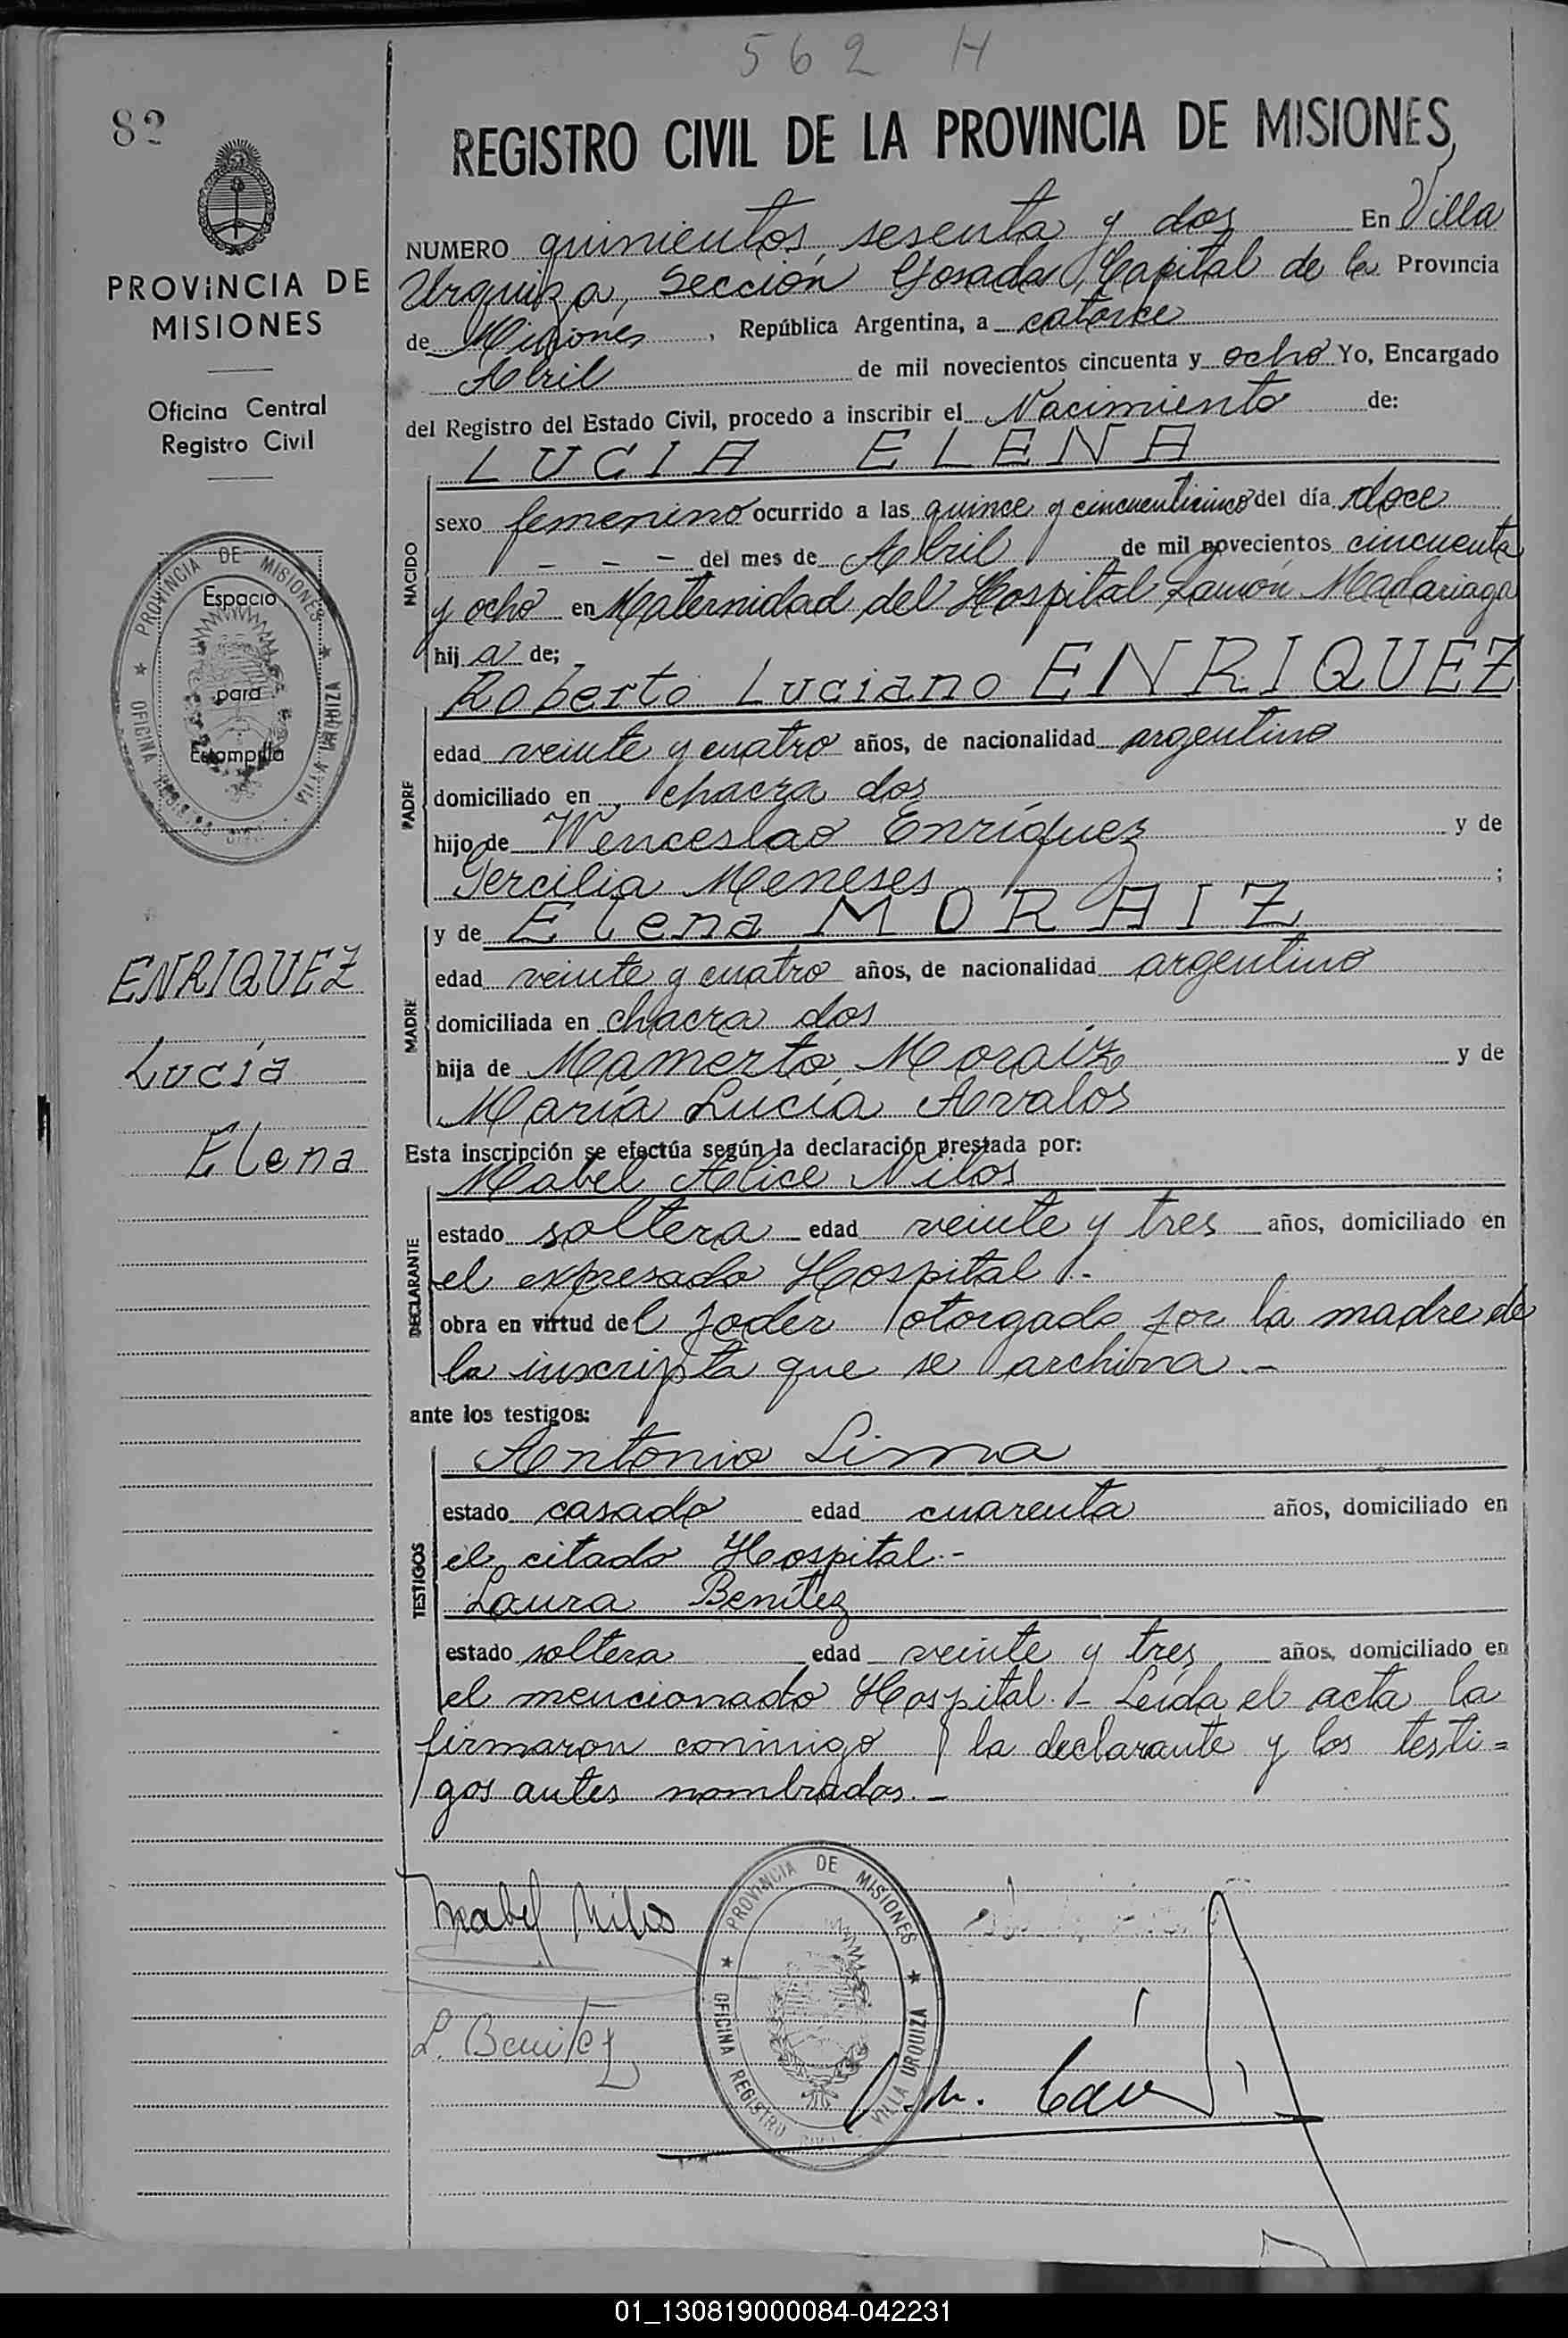 562 H
82
REGISTRO CIVIL DE LA PROVINCIA DE MISIONES,
PROVINCIA DE
MISIONES
Oficina Central
Registro Civil
PROVINCIA DE MISIONES
Espacio
para
Estampilla
OFICINA
VILLA URQUIZA
ENRIQUEZ
Lucía
Elena
NUMERO quinientos sesenta y dos En Villa
Urquiza, Sección Posadas, Capital de la Provincia
de Misiones, República Argentina, a catorce
Abril de mil novecientos cincuenta y ocho Yo, Encargado
del Registro del Estado Civil, procedo a inscribir el Nacimiento de:
LUCIA ELENA
NACIDO
sexo femenino ocurrido a las quince y cincuenticinco del día doce
- - - del mes de Abril de mil novecientos cincuenta
y ocho en Maternidad del Hospital Ramón Madariaga
hij a de;
Roberto Luciano ENRIQUEZ
PADRE
edad veinte y cuatro años, de nacionalidad argentino
domiciliado en chacra dos
hijo de Wenceslao Enríquez y de
Tercilia Meneses ;
y de Elena MORAIZ
MADRE
edad veinte y cuatro años, de nacionalidad argentino
domiciliada en chacra dos
hija de Mamerto Moraíz y de
María Lucía Avalos
Esta inscripción se efectúa según la declaración prestada por:
Mabel Alice Nilos
DECLARANTE
estado soltera edad veinte y tres años, domiciliado en
el expresado Hospital.-
obra en virtud del poder otorgado por la madre de
la inscripta que se archiva.-
ante los testigos:
Antonio Lima
TESTIGOS
estado casado edad cuarenta años, domiciliado en
el citado Hospital.-
Laura Benítez
estado soltera edad veinte y tres años, domiciliado en
el mencionado Hospital.- Leída el acta la
firmaron conmigo la declarante y los testi=
gos antes nombrados.-
Mabel Nilos
L. Benitez
PROVINCIA DE MISIONES
OFICINA REGISTRO CIVIL VILLA URQUIZA
01_130819000084-042231